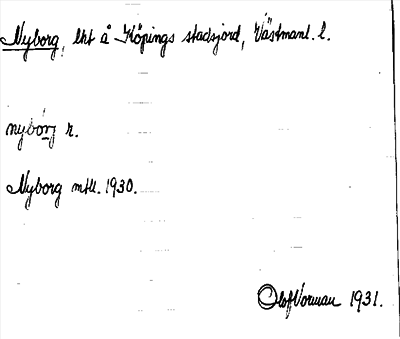 Nyborg, lht å Köpings stadsjord, Västmanl. l.
nybórj r.
Nyborg mtll. 1930.
Olof Vorman 1931.